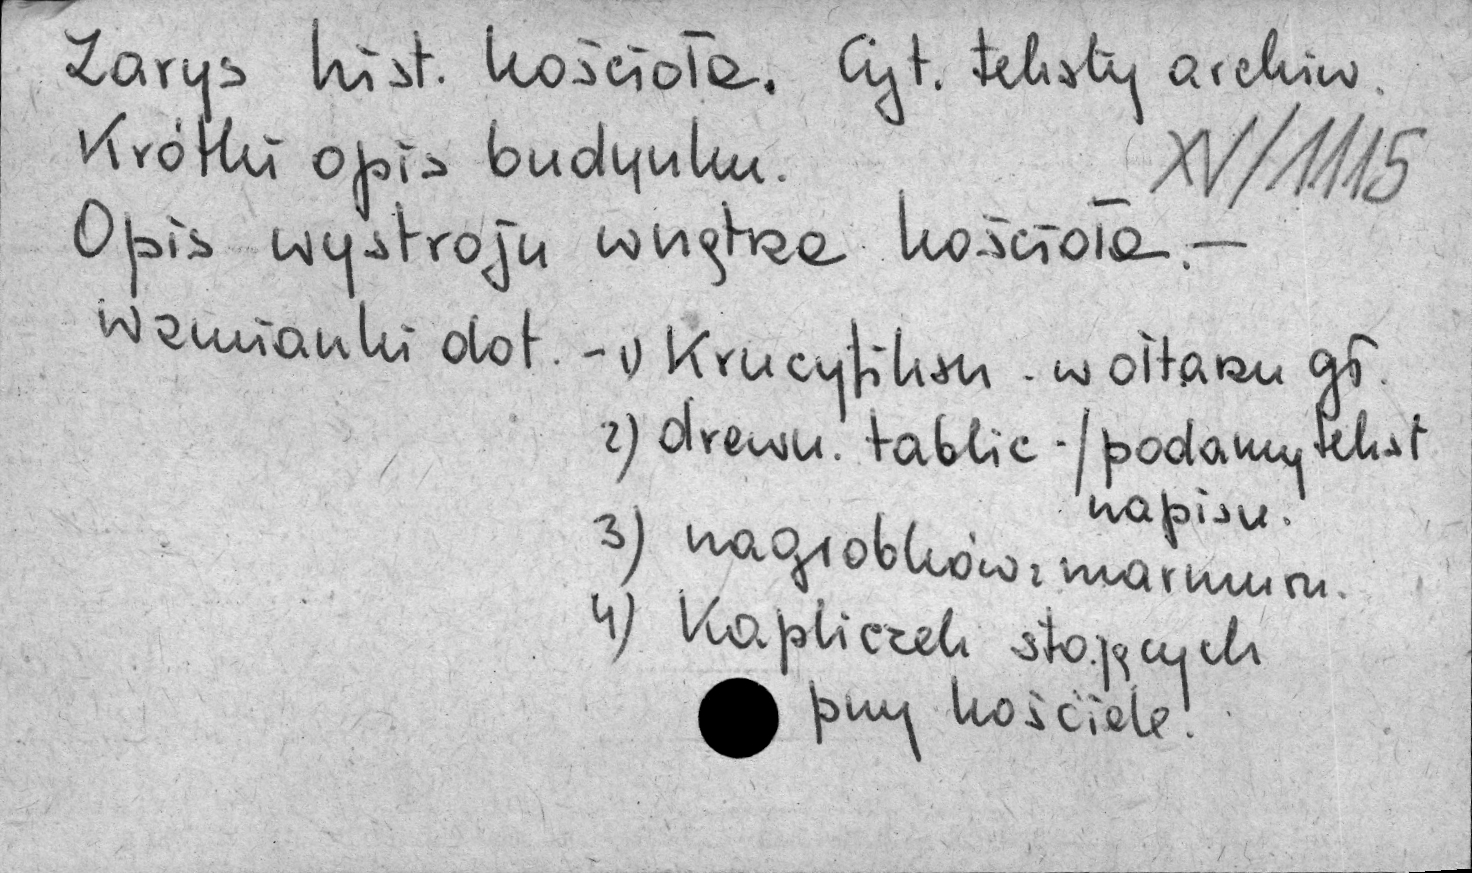 Zarys hist. kościoła. Cyt. teksty archiw.
Krótki opis budynku.
XV/1115
Opis wystroju wnętrza kościoła. —
Wzmianki dot. - 1) Krucyfiksu - w ołtarzu gł.
2) drewn. tablic - / podany tekst
napisu.
3) nagrobków z marmuru.
4) Kapliczek stojących
przy kościele.